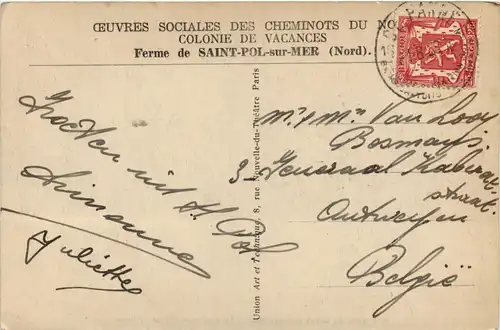 ŒUVRES SOCIALES DES CHEMINOTS DU NO
COLONIE DE VACANCES
Ferme de SAINT-POL-sur-MER (Nord).
Groeten uit St. Pol
Juliette
Union Art et Technique, 8, rue Nouvelle-du-Théâtre Paris
Mr & Mme Van Looy
Bosmans
3 - Generaal
straat
Antwerpen
België